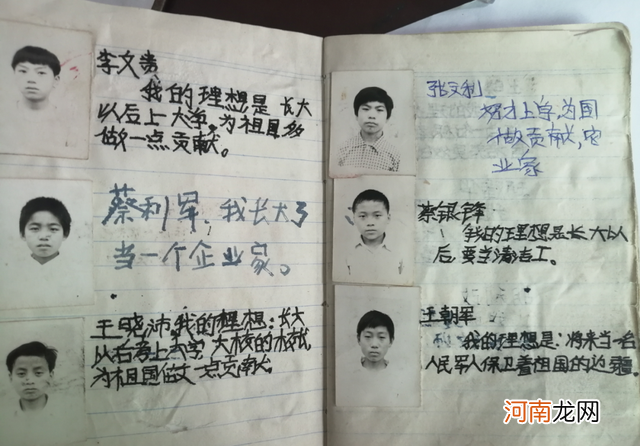 李文贵
我的理想是 长大
以后上大学,为祖国多
做一点贡献。
蔡利军,我长大了
当一个企业家。
王晓沛,我的理想:长大
以后考上大学
为祖国做一点贡献。
张文利
好才上学,为国
做贡献,
业家
蔡银锋
我的理想是长大以
后,要当清洁工。
王朝军
我的理想是:将来当一名
人民军人保卫着祖国的边疆。
河南龙网
www.cnhnb.com